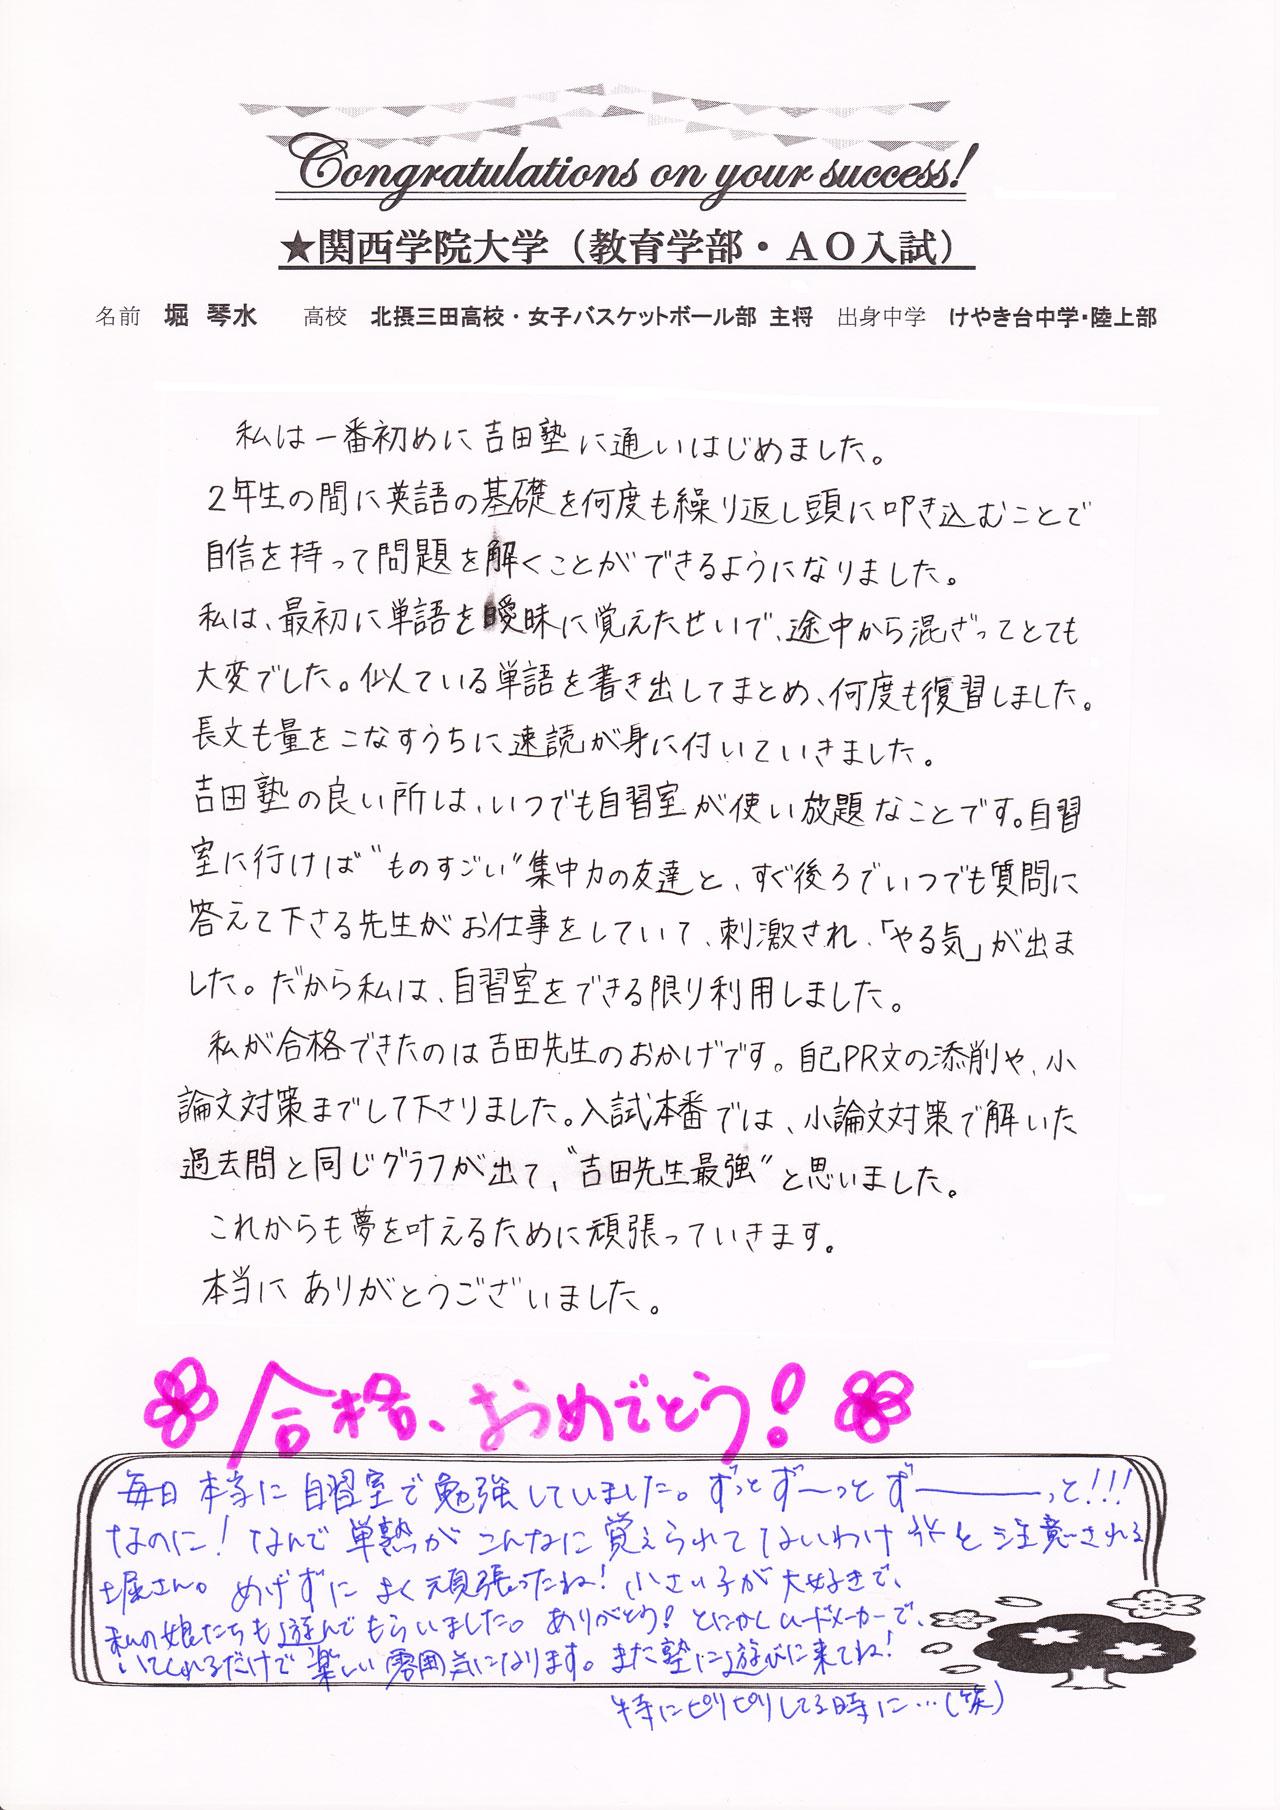 Congratulations on your success!
★関西学院大学（教育学部・ＡＯ入試）
名前 堀 琴水 高校 北摂三田高校・女子バスケットボール部 主将 出身中学 けやき台中学・陸上部
私は一番初めに吉田塾に通いはじめました。
2年生の間に英語の基礎を何度も繰り返し頭に叩き込むことで
自信を持って問題を解くことができるようになりました。
私は、最初に単語を曖昧に覚えたせいで、途中から混ざってとても
大変でした。似ている単語を書き出してまとめ、何度も復習しました。
長文も量をこなすうちに速読が身に付いていきました。
吉田塾の良い所は、いつでも自習室が使い放題なことです。自習
室に行けば"ものすごい"集中力の友達と、すぐ後ろでいつでも質問に
答えて下さる先生がお仕事をしていて、刺激され、「やる気」が出ま
した。だから私は、自習室をできる限り利用しました。
私が合格できたのは吉田先生のおかげです。自己PR文の添削や、小
論文対策までして下さりました。入試本番では、小論文対策で解いた
過去問と同じグラフが出て、"吉田先生最強"と思いました。
これからも夢を叶えるために頑張っていきます。
本当に ありがとうございました。
合格、おめでとう!
毎日 本当に 自習室で 勉強していました。ずっとず〜っとず――っと!!!
なのに! なんで 単熟が こんなに 覚えられてないわけ と 注意される
堀さん。めげずに よく 頑張ったね! 小さい子が大好きで、
私の娘たちも遊んでもらいました。ありがとう! とにかくムードメーカーで、
いてくれるだけで楽しい雰囲気になります。また塾に遊びに来てね!
特にピリピリしてる時に…(笑)